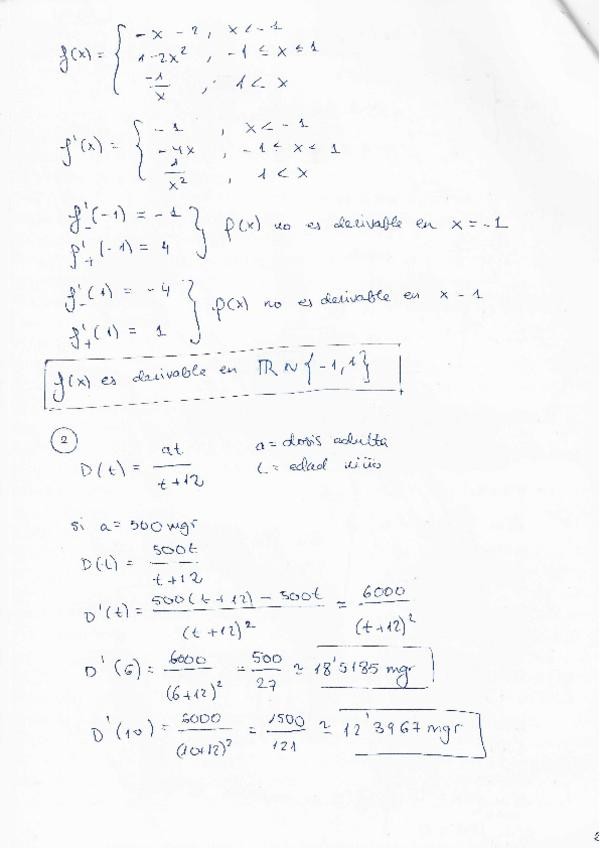 f(x) = { -x - 2 , x < -1
1 - 2x² , -1 ≤ x ≤ 1
-1/x , 1 < x
f'(x) = { -1 , x < -1
-4x , -1 < x < 1
1/x² , 1 < x
f'₋(-1) = -1 } f(x) no es derivable en x = -1
f'₊(-1) = 4
f'₋(1) = -4 } f(x) no es derivable en x - 1
f'₊(1) = 1
f(x) es derivable en ℝ ∖ {-1, 1}
② D(t) = at/(t+12) a = dosis adulta
t = edad niño
si a = 500 mgr
D(t) = 500t/(t+12)
D'(t) = (500(t+12) - 500t)/(t+12)² = 6000/(t+12)²
D'(6) = 6000/(6+12)² = 500/27 ≃ 18'5185 mgr
D'(10) = 6000/(10+12)² = 1500/121 ≃ 12'3967 mgr